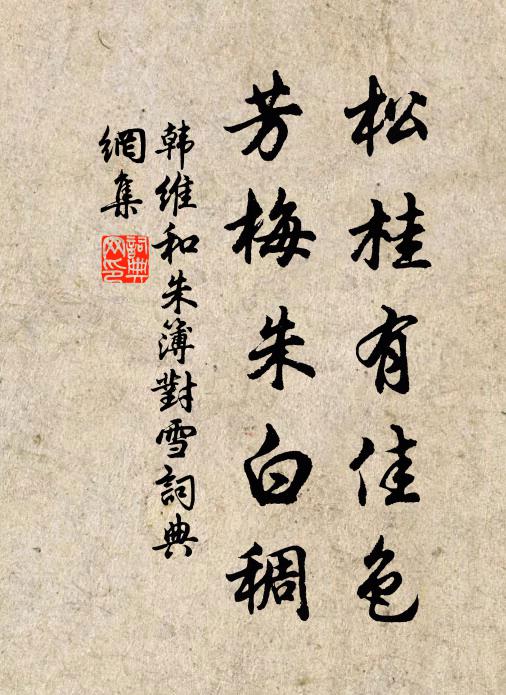 松桂有佳色
芳梅朱白稠
韩维和朱簿對雪詞典
網集
詞典网印